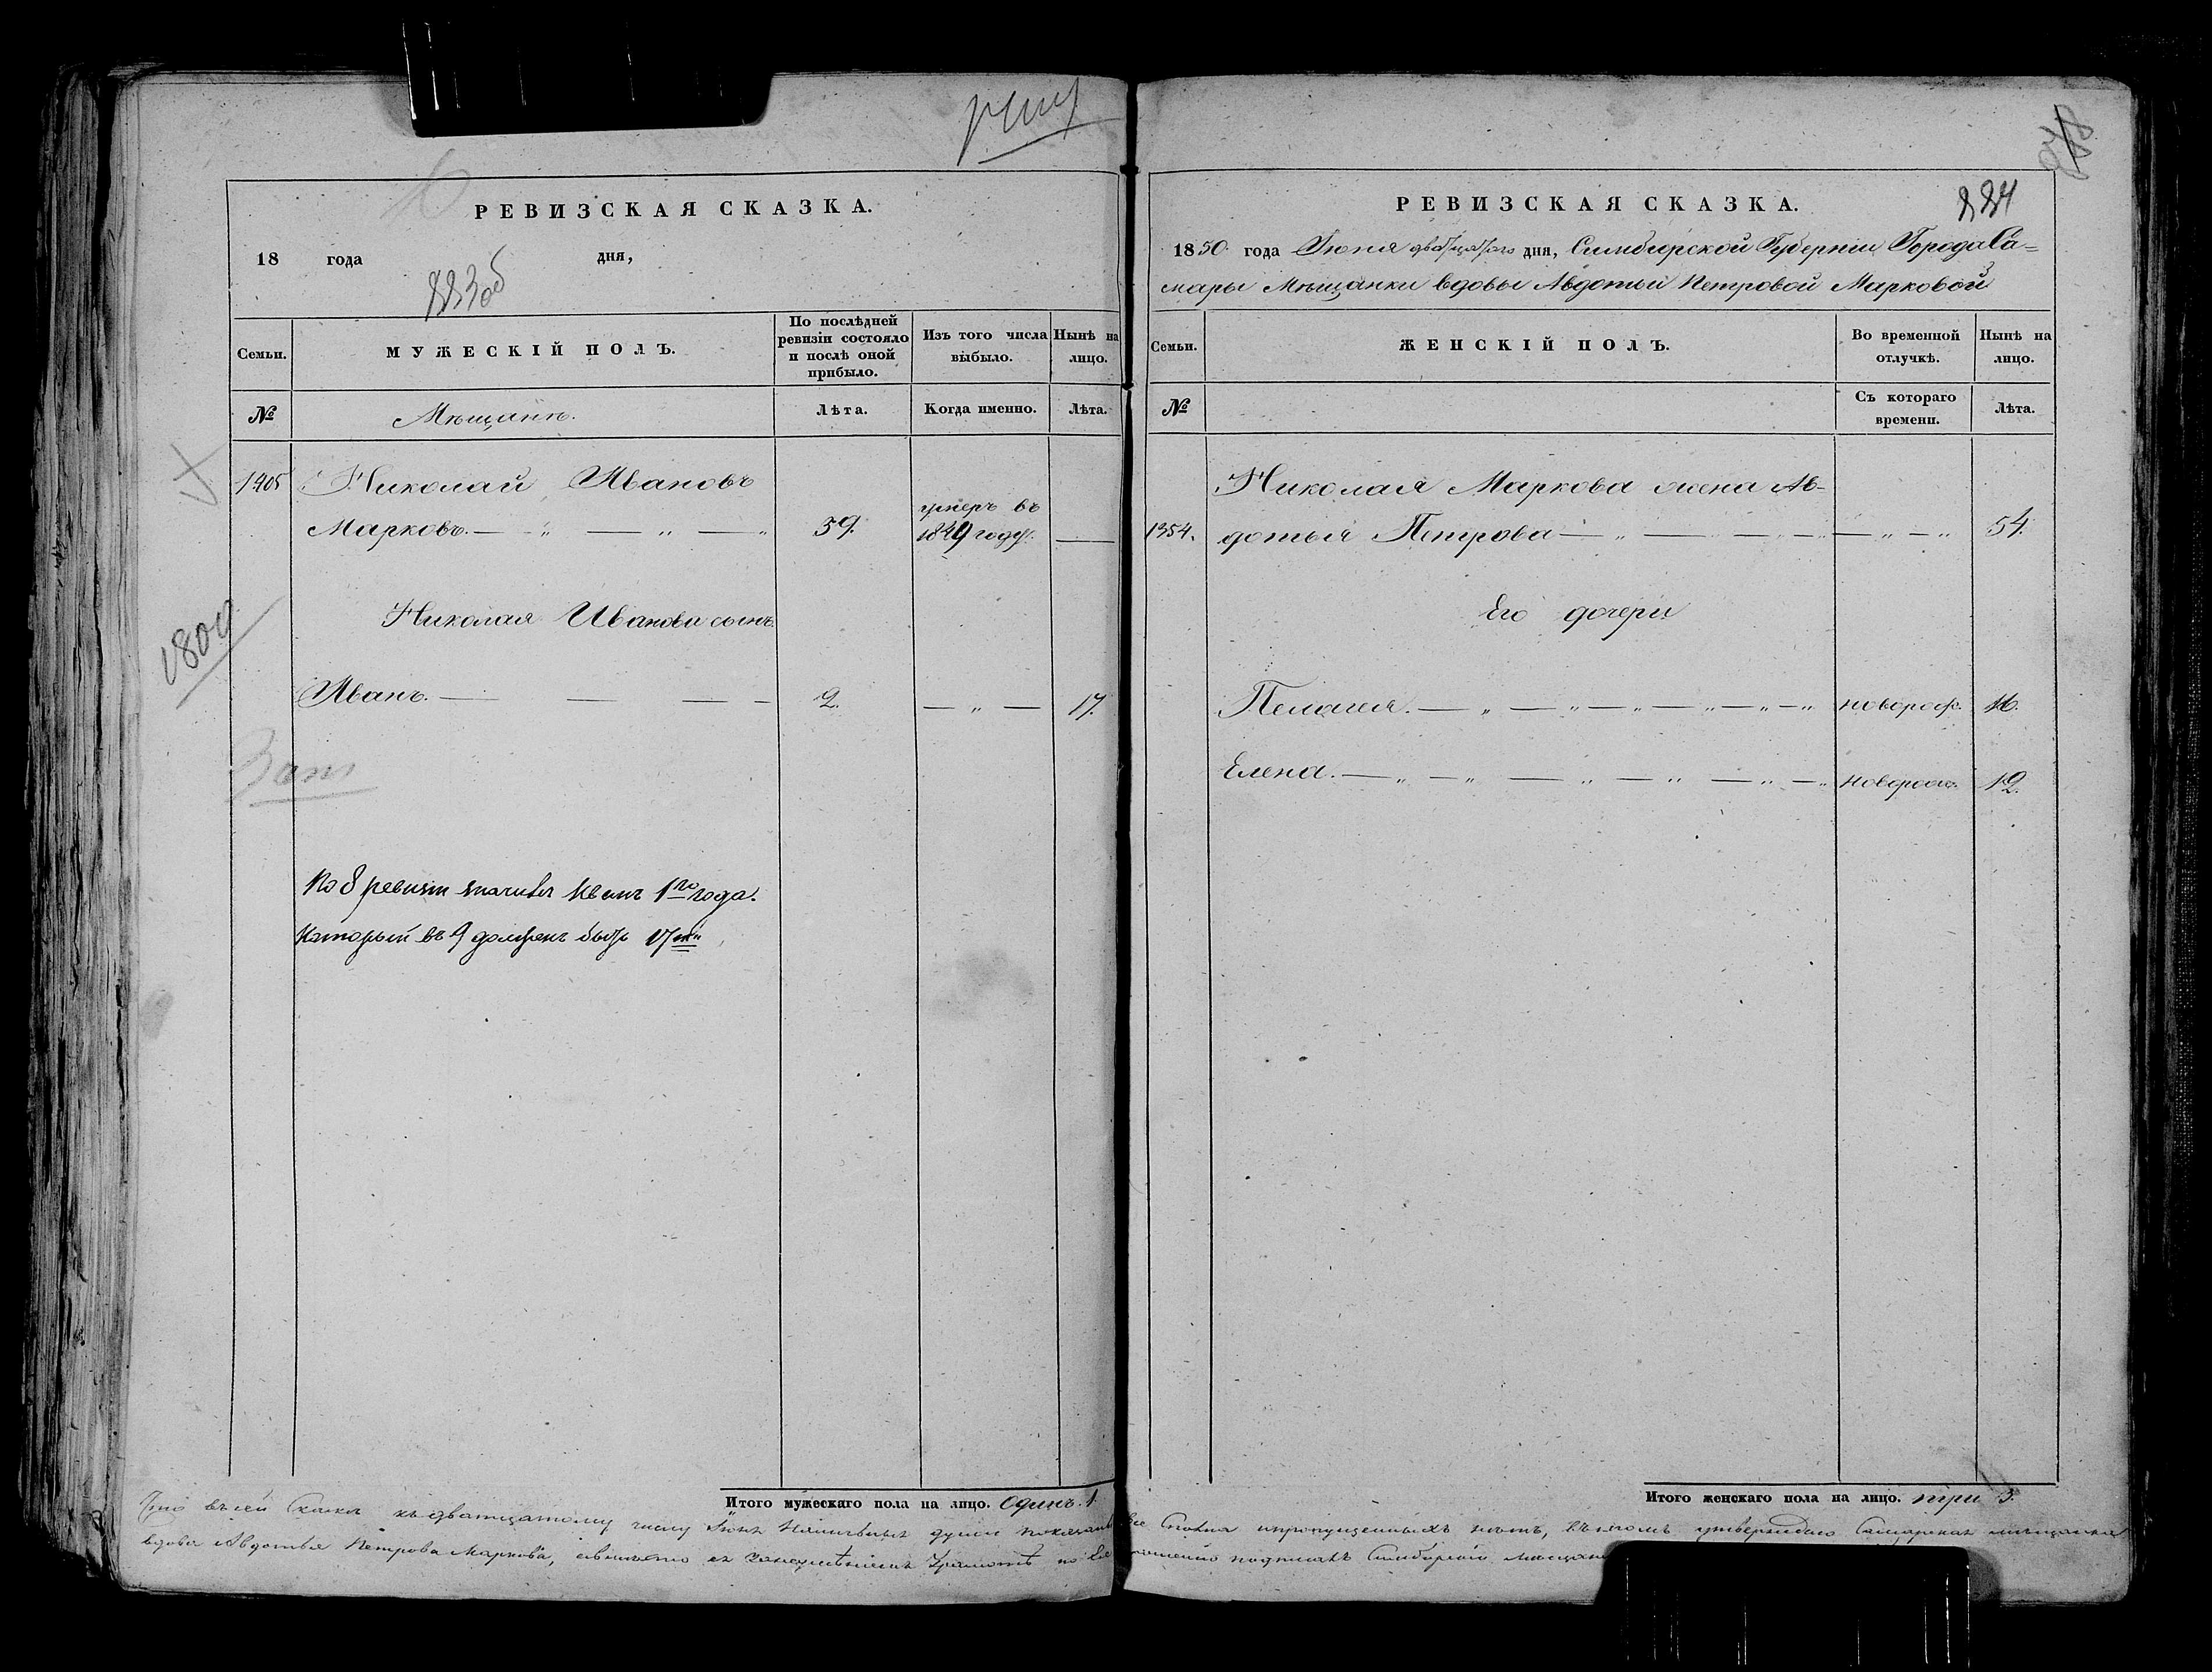 РЕВИЗСКАЯ СКАЗКА.
18 года дня,
883об
Семьи.
МУЖЕСКІЙ ПОЛЪ.
По послѣдней ревизіи состояло и послѣ оной прибыло.
Изъ того числа выбыло.
Нынѣ на лицо.
№
Мѣщанѣ.
Лѣта.
Когда именно.
Лѣта.
1405 Николай Ивановъ
Марковъ. 59. умеръ въ 1849 году.
1809
Николая Иванова сынъ
Иванъ. 2. 17.
По 8 ревизіи значился Иванъ 1го года.
Который въ 9 долженъ быть 17ти
Итого мужескаго пола на лицо. Одинъ. 1.
884
РЕВИЗСКАЯ СКАЗКА.
1850 года Іюня дватцатаго дня, Симбирской Губерніи Города Са=
мары Мѣщанки вдовы Авдотьи Петровой Марковой
Семьи.
ЖЕНСКІЙ ПОЛЪ.
Во временной отлучкѣ.
Нынѣ на лицо.
№
Съ котораго времени.
Лѣта.
Николая Маркова жена Ав-
1354. дотья Петрова 54.
Его дочери
Пелагея. новорож. 16.
Елена. новорож. 12.
Итого женскаго пола на лицо. три 3.
Что въ сей Сказкѣ къ дватцатому числу Іюня наличныя души показаны все Сполна и пропущенныхъ нѣтъ, въ томъ утверждаю Самарская мѣщанка
вдова Авдотья Петрова Маркова, а вместо ея Грамотѣ по Ея прошенію Симбирскій